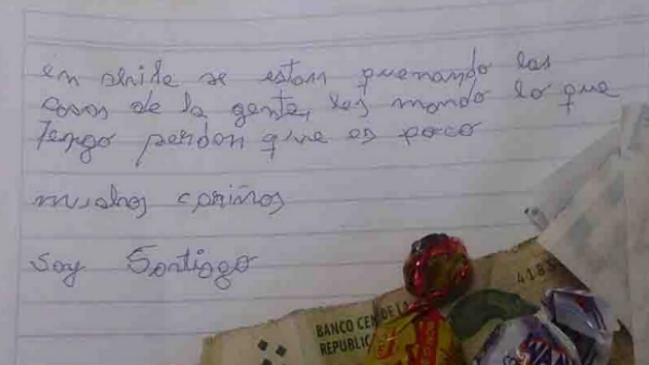 en shile se estan quemando las
cosas de la gente, les mando lo que
tengo perdon que es poco
mushos cariños
soy Santiago
BANCO CEN DE LA
REPUBLIC
4183